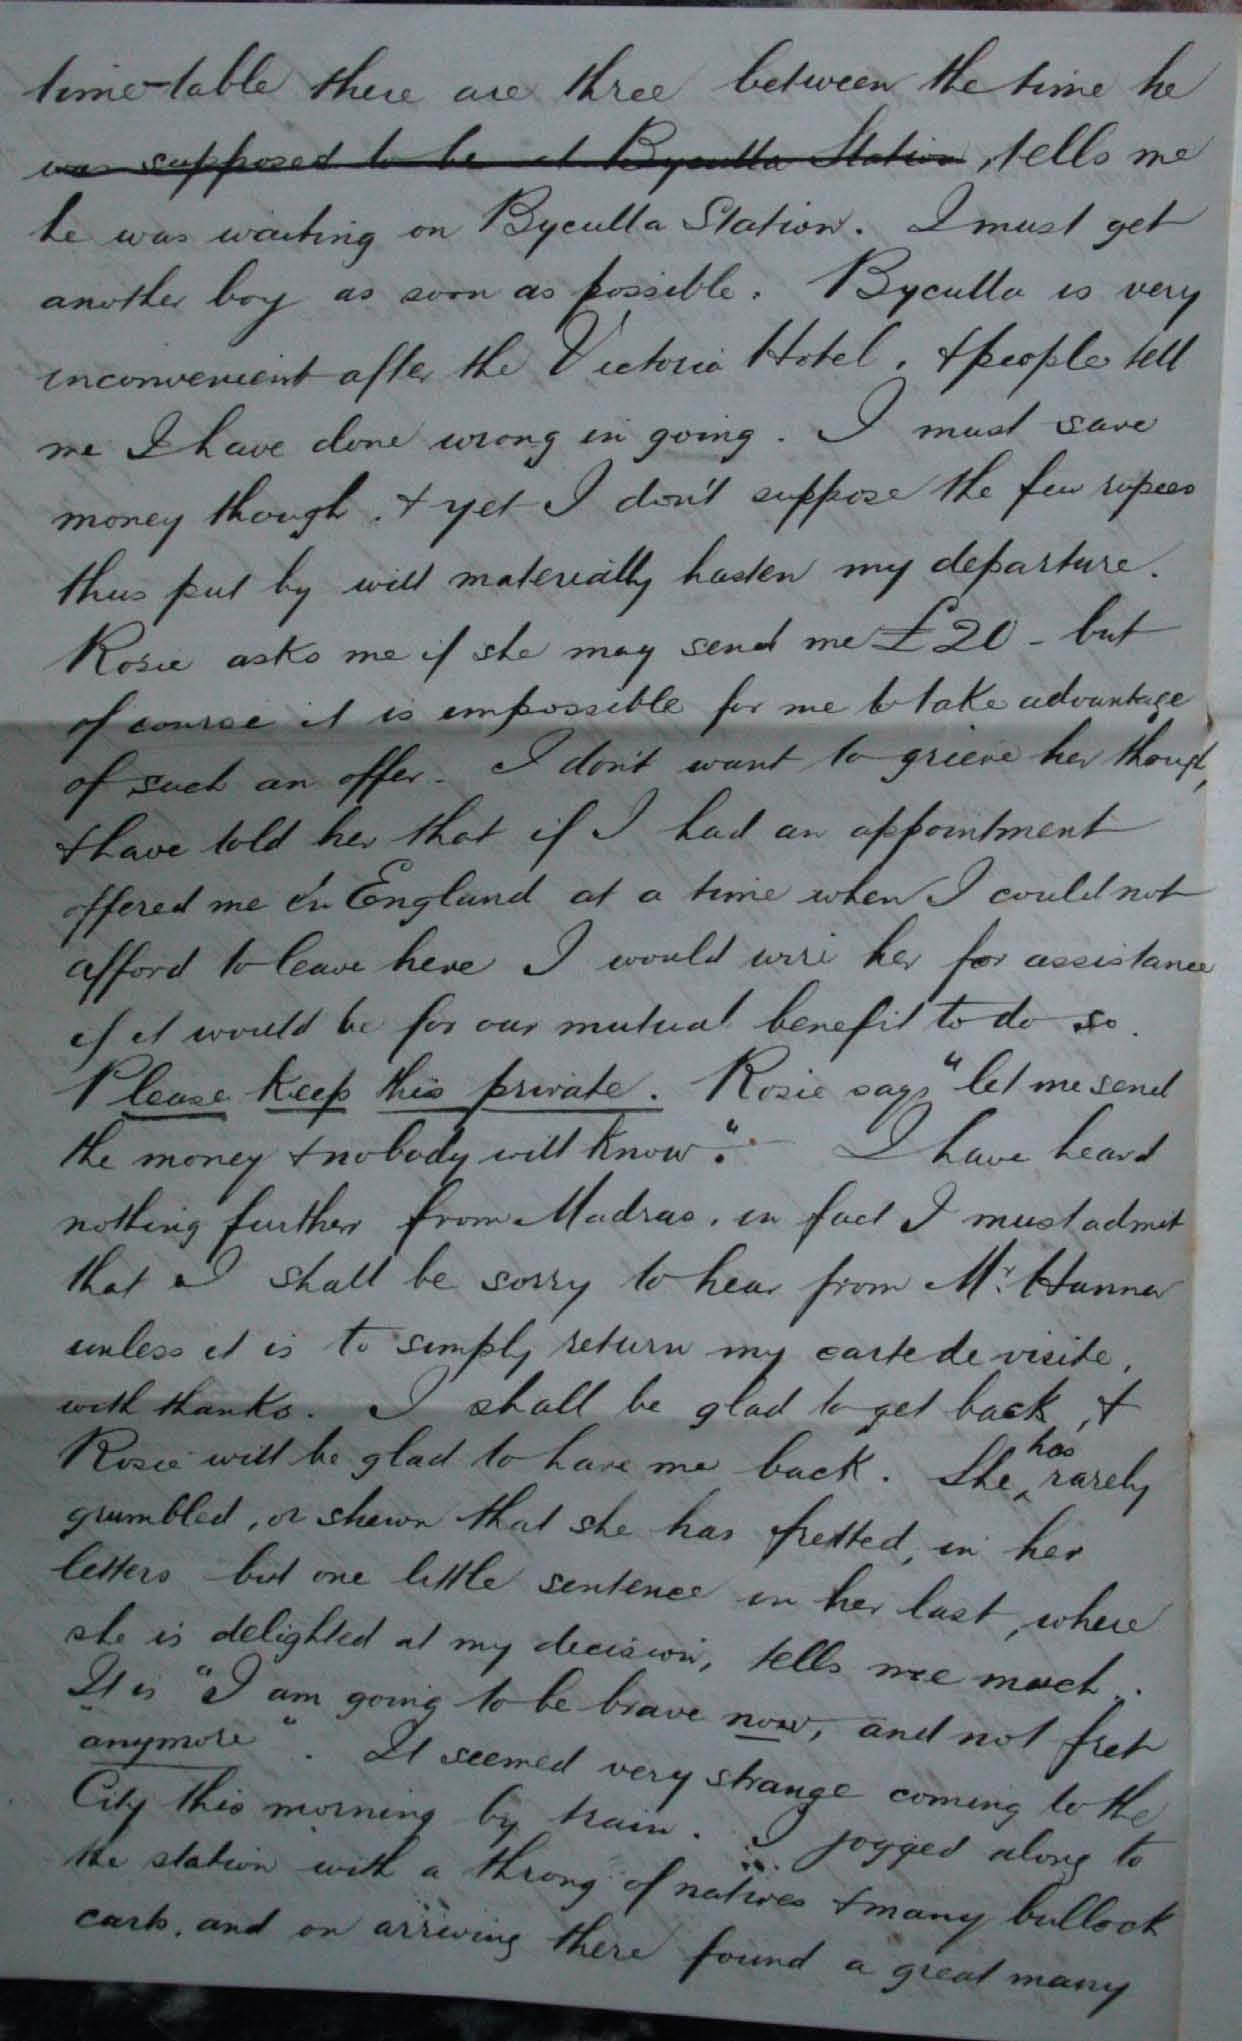 time-table there are three between the time he
was supposed to be at Byculla Station, tells me
he was waiting on Byculla Station. I must get
another boy as soon as possible. Byculla is very
inconvenient after the Victoria Hotel, & people tell
me I have done wrong in going. I must save
money though, & yet I don't suppose the few rupees
thus put by will materially hasten my departure.
Rosie asks me if she may send me £20 - but
of course it is impossible for me to take advantage
of such an offer. I don't want to grieve her though,
& have told her that if I had an appointment
offered me in England at a time when I could not
afford to leave here I would wire her for assistance
if it would be for our mutual benefit to do so.
Please keep this private. Rosie says "let me send
the money & nobody will know". I have heard
nothing further from Madras, in fact I must admit
that I shall be sorry to hear from Mr. Hanna
unless it is to simply return my carte de visite,
with thanks. I shall be glad to get back, &
Rosie will be glad to have me back. She has rarely
grumbled, or shewn that she has fretted, in her
letters but one little sentence in her last, where
she is delighted at my decision, tells me much.
It is "I am going to be brave now, and not fret
"anymore". It seemed very strange coming to the
City this morning by train. I jogged along to
the station with a throng of natives & many bullock
carts, and on arriving there found a great many